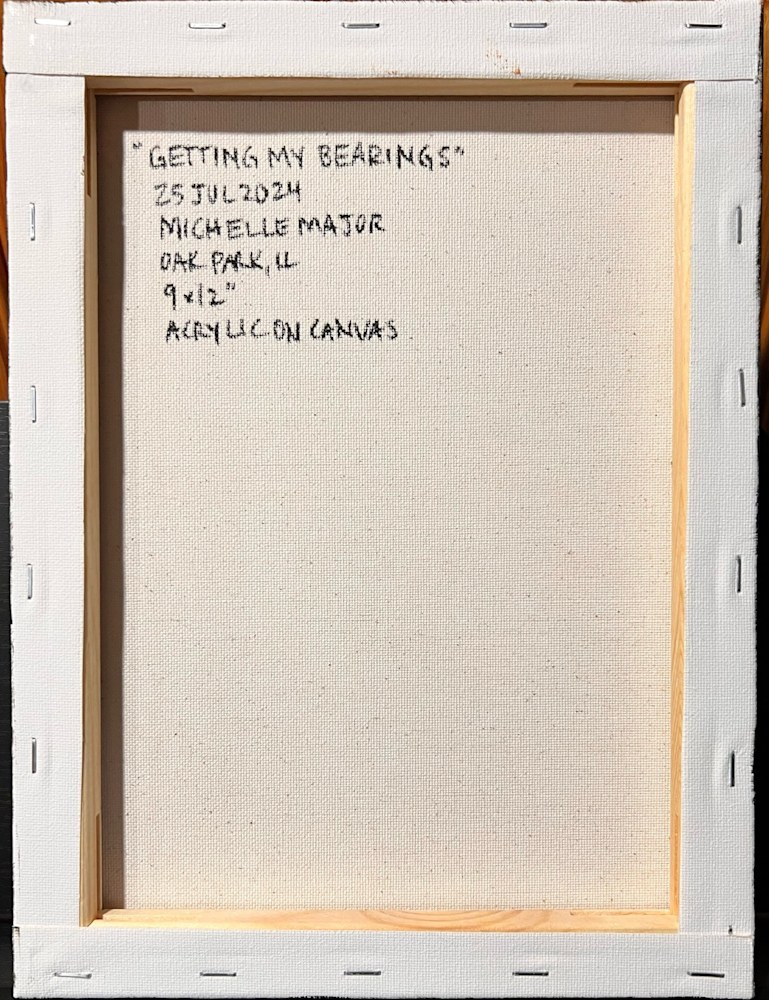 "GETTING MY BEARINGS"
25 JUL 2024
MICHELLE MAJOR
OAK PARK, IL
9x12"
ACRYLIC ON CANVAS